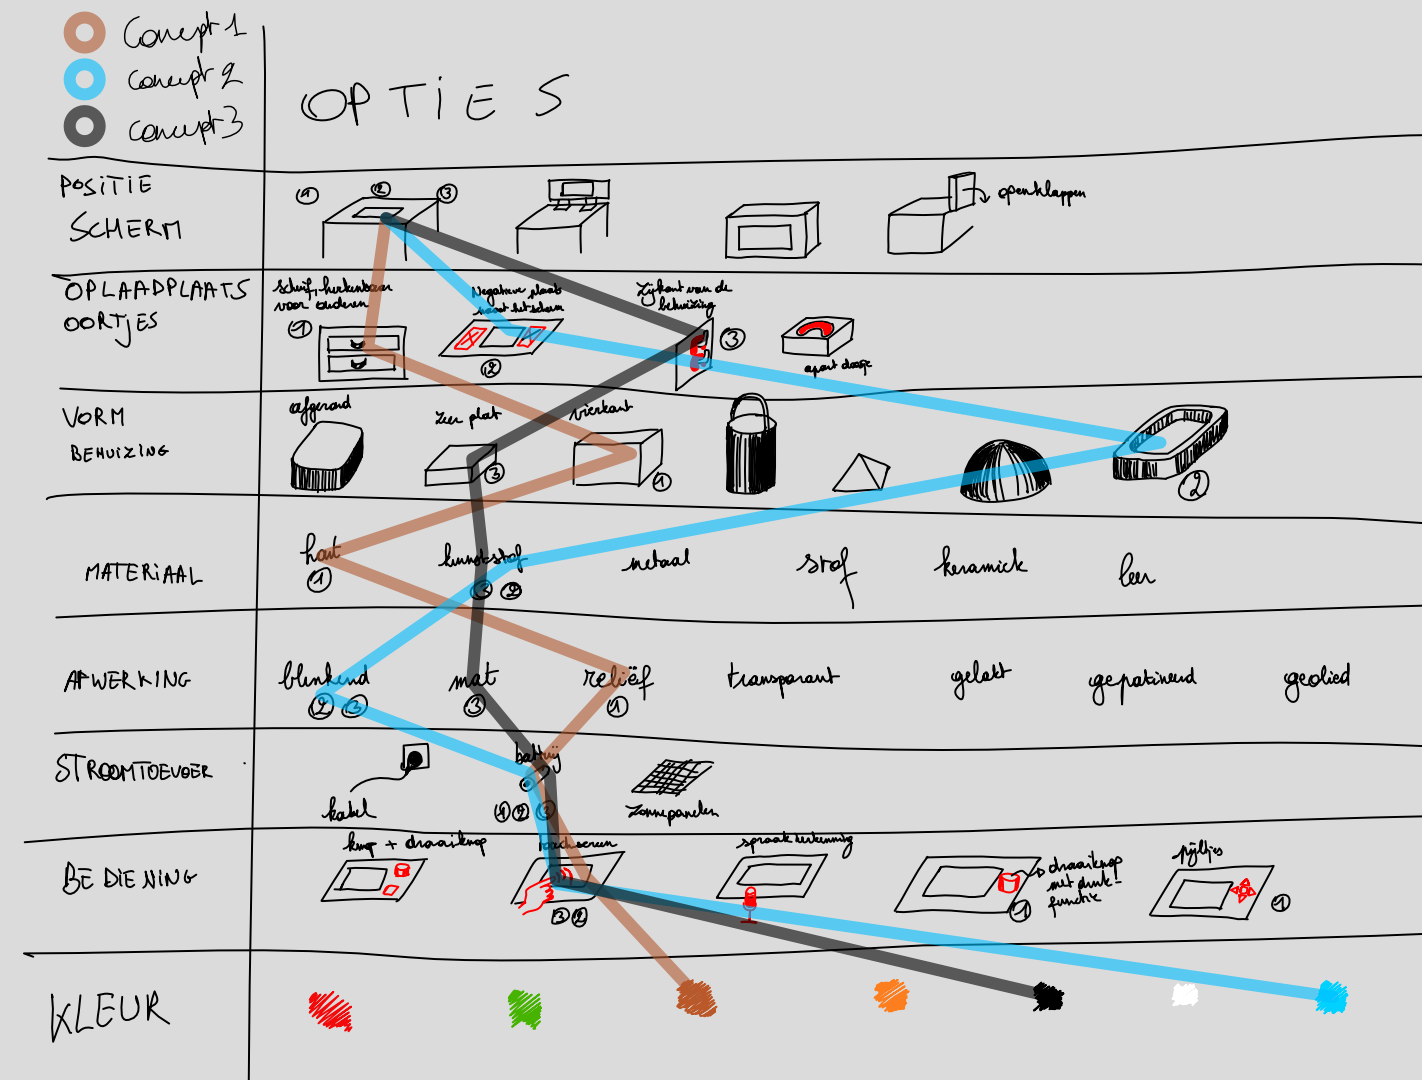 Concept 1
concept 2
concept 3
OPTIES
POSITIE
SCHERM
1
2
3
openklappen
OPLAADPLAATS
OORTJES
schuif, herkenbaar
voor ouderen
1
Negatieve plaats
naast het scherm
2
Zijkant van de
behuizing
3
apart doosje
VORM
BEHUIZING
afgerond
zeer plat
3
vierkant
1
2
MATERIAAL
hout
1
kunststof
3 2
metaal
stof
keramiek
leer
AFWERKING
blinkend
2 3
mat
3
reliëf
1
transparant
gelakt
gepatineerd
geolied
STROOMTOEVOER
kabel
batterij
1 2 3
zonnepanelen
BEDIENING
knop + draaiknop
touchscreen
3 2
spraakherkenning
draaiknop
met druk-
functie
1
pijltjes
1
KLEUR